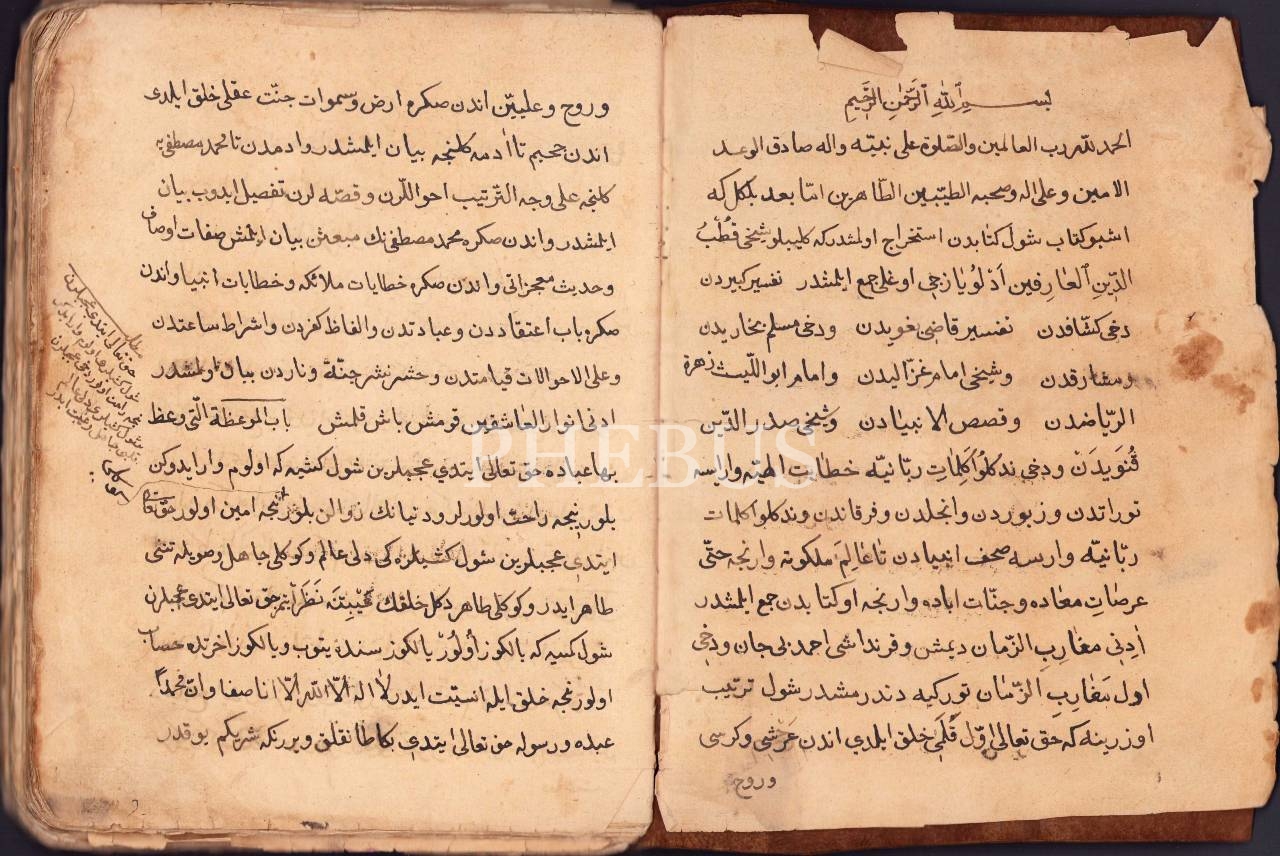 بسم الله الرحمن الرحيم
الحمد لله رب العالمين والصّلوة على نبيّه واله صادق الوعد
الامين وعلى اله وصحبه الطيّبين الطّاهرين امّا بعد بلكل كه
اشبو كتاب شول كتابدن استخراج اولمشدر كه كليبلو شيخى قُطْبُ
الدّينِ العَارِفين اَدْلُو يَازجى اوغلى جمع ايلمشدر تفسير كبيردن
دخى كشّافدن تفسير قاضى بغويدن ودخى مسلم بخاريدن
ومشارقدن وشيخى امام غزّاليدن وامام ابو اللّيث زهرة
الرّياضدن وقصص الانبيادن وشيخى صدر الدّين
قُنَوِيدَنْ ودخى ندكلو كَلِمَاتِ ربّانيّه خطابات الهيّه وارايسه
توراتدن وزبوردن وانجلدن وفرقاندن وندكلو كلمات
ربّانيّه وارسه صحف انبيادن تا عَالَمِ ملكوته وارنجه حتّى
عرصَاتِ معَاده وجنّات اباده وارنجه او كتابدن جمع ايلمشدر
اَدِنى مغَارِب الزّمان ديمش وقرنداشى احمد بى جان ودخى
اول مَغَاربِ الزّمَان توركيه دندرمشدر شول ترتيب
اوزرينه كه حق تعالى اوّل قَلَمى خلق ايلدي اندن عَرشى وكرسى
وروح
وروح وعليّين اندن صكره ارض وسموات جنّت عقلى خلق ايلدى
اندن جحيم تا ادمه كلنجه بيان ايلمشدر وادمدن تا محمد مصطفى يه
كلنجه على وجه التّرتيب احواللرن وقصّه لرن تفصيل ايدوب بيان
ايلمشدر واندن صكره محمد مصطفى نك مبعثن بيان ايلمش صفات اوصاف
وحديث معجزاتى واندن صكره خطابات ملائكه وخطابات انبيا واندن
صكره باب اعتقاددن وعبادتدن والفاظ كفردن واشراط ساعتدن
وعلى الاحوالات قيامتدن وحشر نشر جنّة وناردن بيان اولمشدر
ادنى انوار العَاشقين قومش باش قلمش باب الموعظة الّتى وعظ
بها عباده حق تعالى ايتدي عجبلرين شول كشيه كه اولوم وار ايدوكن
بلور نيجه راحت اولورلر ودنيانك زوالن بلور نجه امين اولور حق تعالى
ايتدي عجبلرين شول كشيلره كى دلى عالم وكوكلى جاهل وصويله تننى
طاهر ايدر وكوكلى طاهر دكل خلقك عَيْبِنَه نَظَر ايدر حق تعالى ايتدى عجبلرن
شول كسيه كه يالكوز اُولُوْر يالكوز سنده يتوب ويالكوز اخرتده حساب
اولور نجه خلق ايله انسيّت ايدر لا اله الّا الله الّا انا صفا وانّ محمداً
عبده ورسوله حق تعالى ايتدى بكا طانقلق ويررنكه شريكم يوقدر